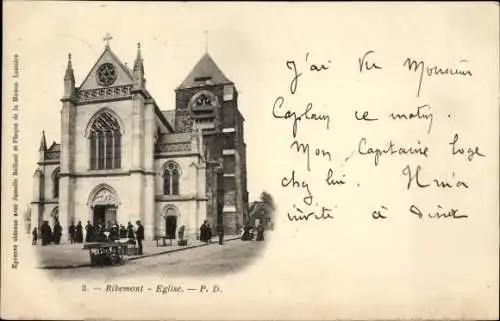 J'ai vu Monsieur
Caplain ce matin.
Mon capitaine loge
chez lui. Il m'a
invité à dîner
3. - Ribemont - Eglise. - P. D.
Epreuve obtenue avec Jumelle Bellieni et Plaque de la Maison Lumière